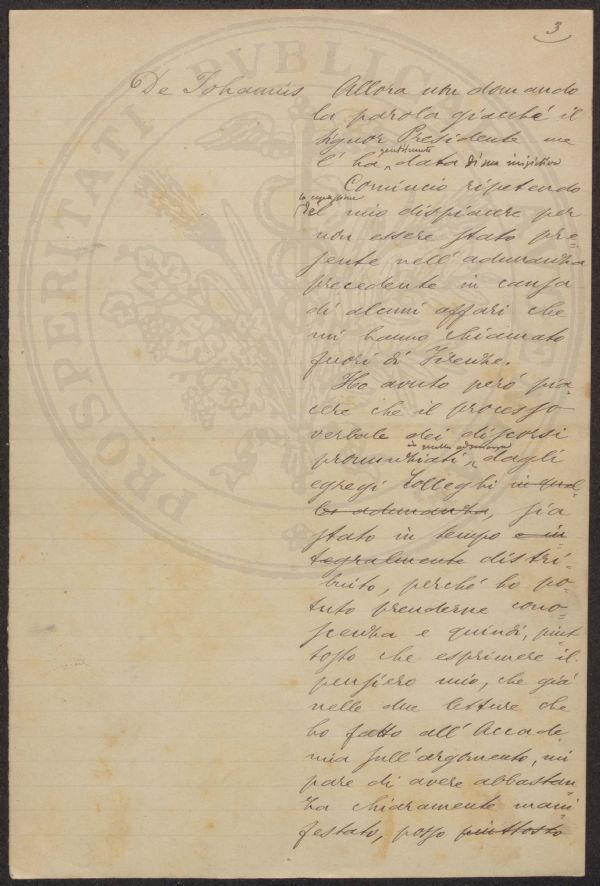 3
De Johannis Allora non domando
la parola giacché il
signor Presidente me
gentilmente
l'ha data di sua iniziativa
Comincio ripetendo
la espressione
del mio dispiacere per
non essere stato pre-
sente nell'adunanza
precedente in causa
di alcuni affari che
mi hanno chiamato
fuori di Firenze.
Ho avuto però pia-
cere che il processo
verbale dei discorsi
in quella adunanza
pronunziati dagli
egregi Colleghi in quel-
la adunanza, sia
stato in tempo e in-
tegralmente distri-
buito, perché ho po-
tuto prenderne cono-
scenza e quindi, piut-
tosto che esprimere il
pensiero mio, che già
nelle due letture che
ho fatto all'Accade-
mia sull'argomento, mi
pare di avere abbastan-
za chiaramente mani-
festato, posso piuttosto
PROSPERITATI PVBLICAE